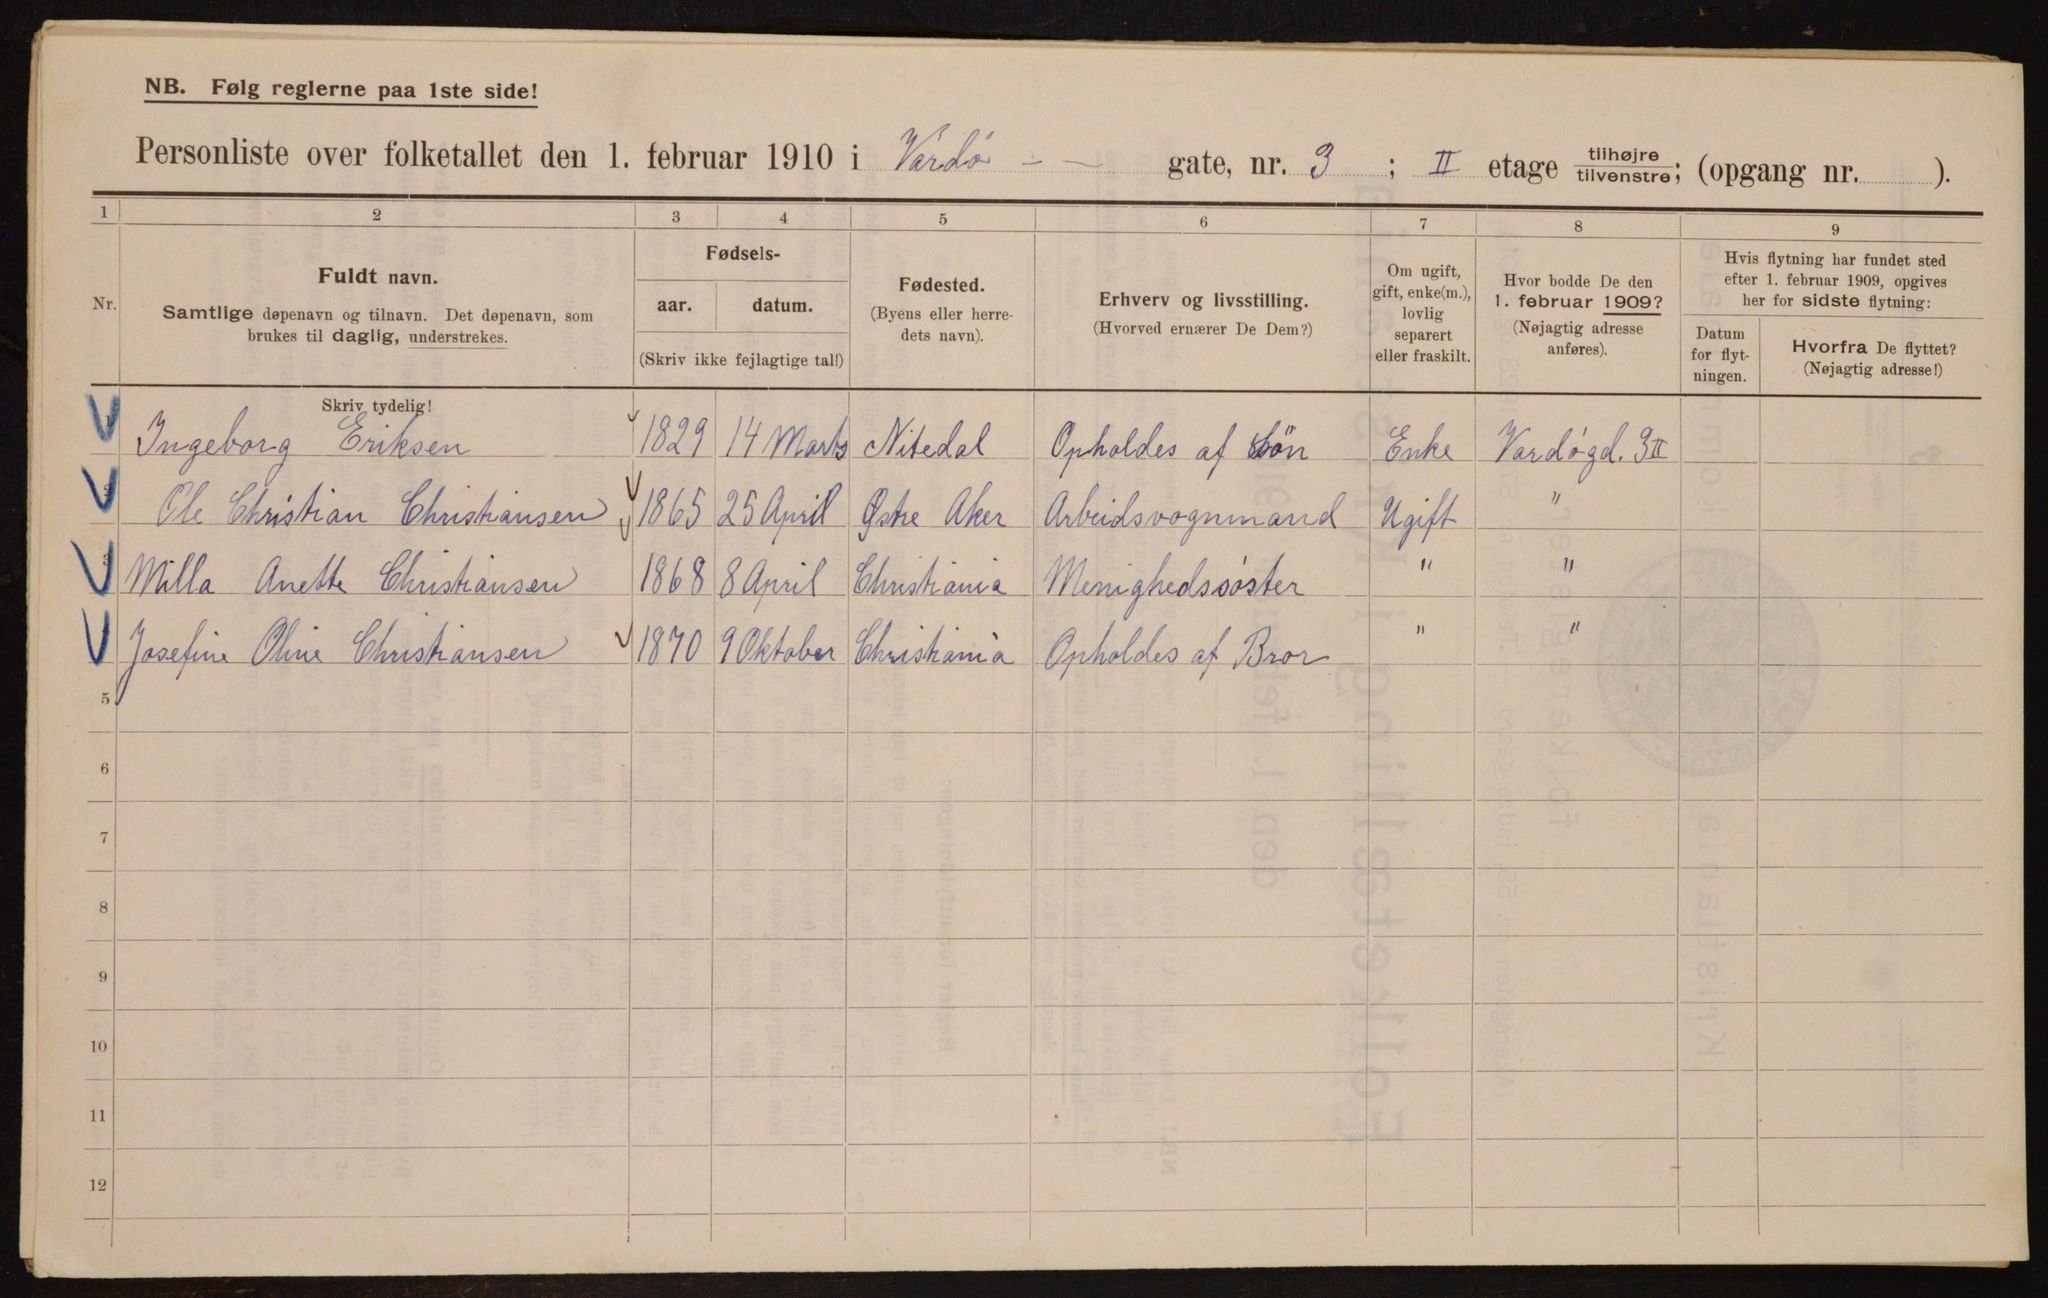 NB. Følg reglerne paa 1ste side!
Personliste over folketallet den 1. februar 1910 i Vardø - - gate, nr. 3 ; II etage tilhøjre tilvenstre; (opgang nr. ).
1 2 3 4 5 6 7 8 9
Nr.
Fuldt navn.
Samtlige døpenavn og tilnavn. Det døpenavn, som
brukes til daglig, understrekes.
Skriv tydelig!
Fødsels-
aar. datum.
(Skriv ikke fejlagtige tal!)
Fødested.
(Byens eller herre-
dets navn).
Erhverv og livsstilling.
(Hvorved ernærer De Dem?)
Om ugift,
gift, enke(m.),
lovlig
separert
eller fraskilt.
Hvor bodde De den
1. februar 1909?
(Nøjagtig adresse
anføres).
Hvis flytning har fundet sted
efter 1. februar 1909, opgives
her for sidste flytning:
Datum
for flyt-
ningen.
Hvorfra De flyttet?
(Nøjagtig adresse!)
1 Ingeborg Eriksen 1829 14 Marts Nitedal Opholdes af Sön Enke Vardøgd. 3 II
2 Ole Christian Christiansen 1865 25 April Østre Aker Arbeidsvognmand Ugift "
3 Milla Anette Christiansen 1868 8 April Christiania Menighedssøster " "
Josefine Oline Christiansen 1870 9 Oktober Christiania Opholdes af Bror " "
5
6
7
8
9
10
11
12